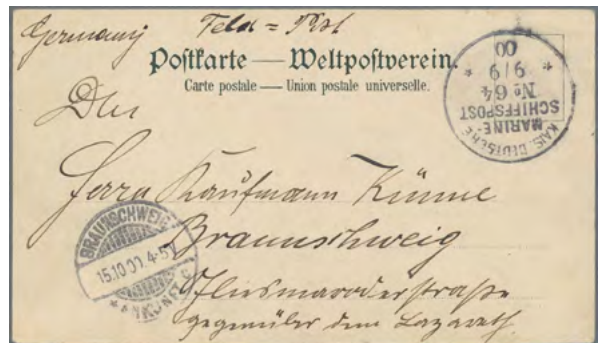 Germany Feld = Post
Postkarte — Weltpostverein.
Carte postale — Union postale universelle.
KAIS. DEUTSCHE
MARINE-
SCHIFFSPOST
No 64
* 9/9 *
00
Herrn Kaufmann Künne
Braunschweig
Gliesmaroderstraße
gegenüber dem Lazareth.
BRAUNSCHWEIG
15.10.00. 4-5N